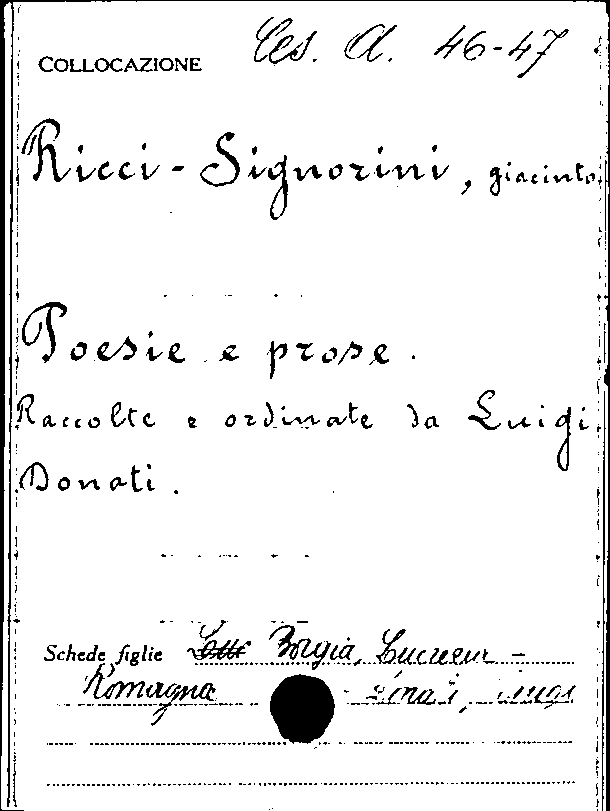 COLLOCAZIONE Ces. A. 46-47
Ricci-Signorini, giacinto.
Poesie e prose.
Raccolte e ordinate da Luigi
Donati.
Schede figlie Borgia,
Romagna